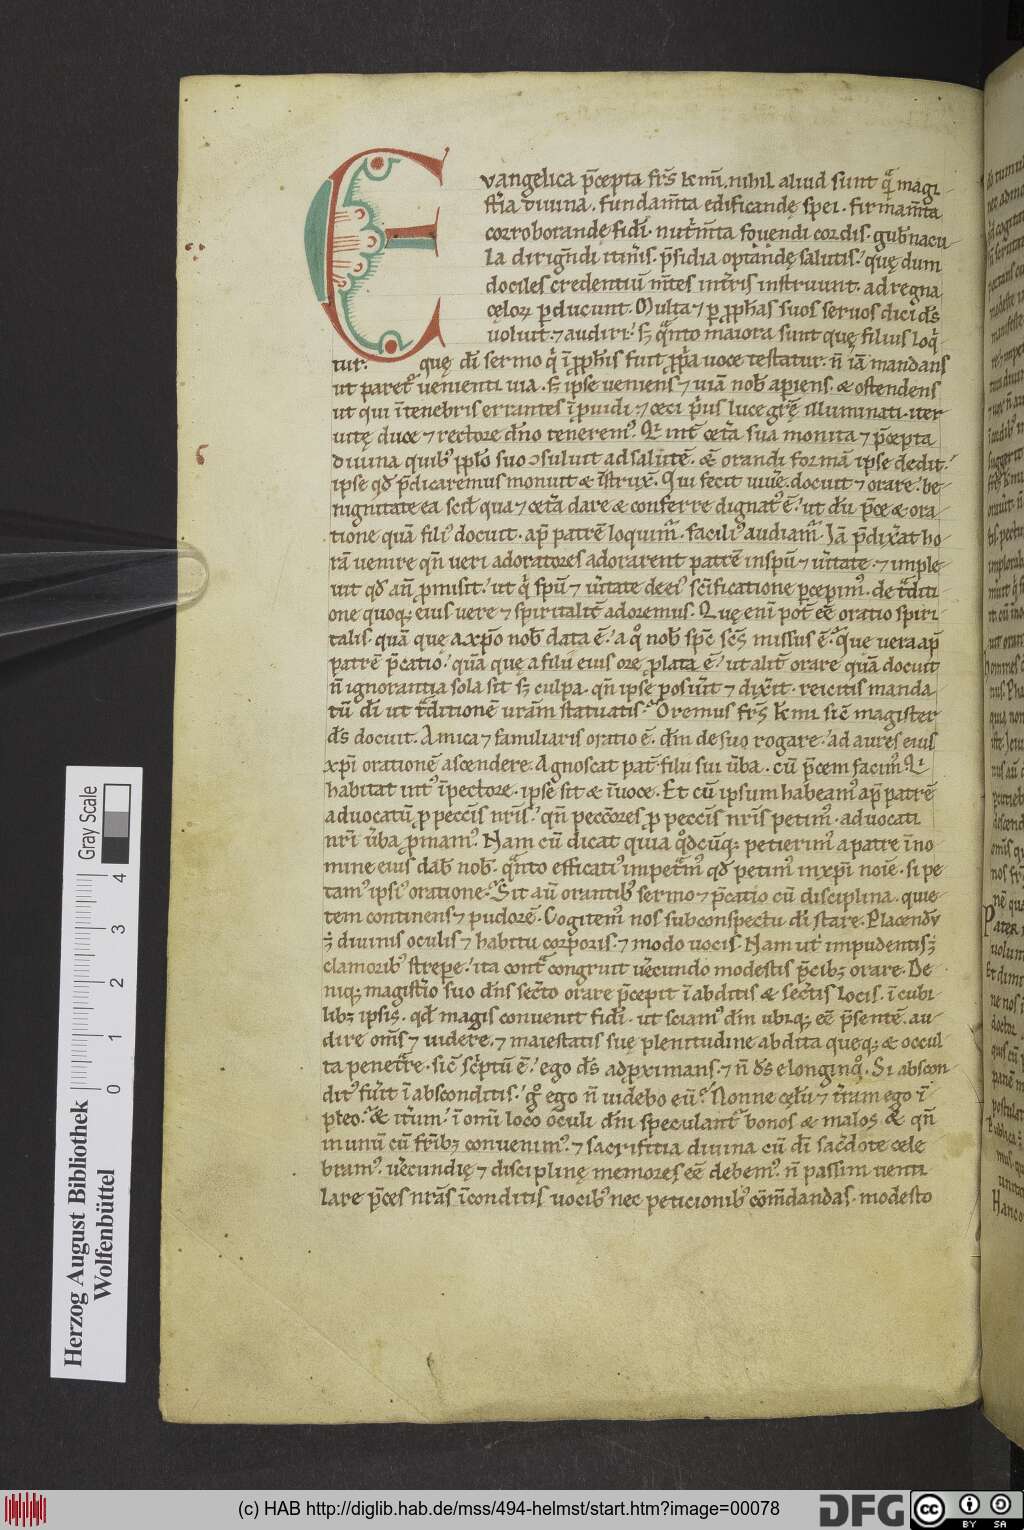 Evangelica p̄cepta fr̄s km̄i. nihil aliud sunt q̄ magi-
st̄ia diuina. fundam̄ta edificandę spei. firmam̄ta
corroborandę fidi. nutrm̄ta fouendi cordis. gub̄nacu-
la dirigndi itin̄is. p̄sidia optandę salutis. quę dum
dociles credentiū m̄tes int̄ris instruunt. ad regna
cęloꝝ ꝑducunt. Multa ⁊ ꝑ ꝓph̄as suos seruos dici d̄s
uoluit. ⁊ audiri. sꝫ q̄nto maiora sunt quę filius loq̄-
tur. quę di sermo q̇ ī ꝓph̄is fuit ꝓp̄a uoce testatur. n̄ iā mandans
ut paret᷒ uenienti uia. sꝫ ipse ueniens ⁊ uiā nob̄ apiens. & ostendens
ut qui ī tenebris errantes īp̄uidi. ⁊ ceci p̄us luce grē illuminati. iter
uitę duce ⁊ rectore dn̄o tenerem᷒. Qi int̄ cet̄a sua monita ⁊ p̄cepta
diuina quib᷒ ppl̄o suo ↄsuluit ad salutē. & orandi formā ipse dedit.
ipse qd̄ p̄dicaremus monuit & īstruxit. Qui fecit uiu̅e. docuit ⁊ orare. be-
nignitate ea scil̄ qua ⁊ cet̄a dare & conferre dignat᷒ ē. ut dū p̄ce & ora-
tione quā fili᷒ docuit. ap̄ patrē loquim᷒. facili᷒ audiam᷒. Iā p̄dix̄at ho-
rā uenire qn̄ ueri adoratores adorarent patrē in spū ⁊ ūitate. ⁊ imple-
uit qd̄ aū ꝓmisit. ut q̇ spū ⁊ ūitate de ei᷒ sc̄ificatione ꝑcepim᷒. de t̄diti-
one quoqꝫ eius uere ⁊ spiritalit̄ adoremus. Quę enī pot̄ eē oratio spiri-
talis. quā que a xp̄o nob̄ data ē. a q̊ nob̄ sp̄c sc̄s missus ē. Que uera ap̄
patrē p̄catio. quā que a filii eius ore ꝓlata ē. ut alit̄ orare quā docuit
n̄ ignorantia sola sit sꝫ culpa. qn̄ ipse posuit ⁊ dix̄it. reicitis manda-
tū di ut t̄ditionē urām statuatis. Oremus fr̄s kmi sic̄ magister
d̄s docuit. Amica ⁊ familiaris oratio ē. dm̄ de suo rogare. ad aures eius
xp̄i orationē ascendere. Agnoscat pat̄ filii sui ūba. cū p̄cem facim᷒. Qi
habitat int᷒ ī pectore. ipse sit & ī uoce. Et cū ipsum habeam᷒ ap̄ patrē
aduocatū ꝓ pecc̄is nr̄is. qn̄ pecc̄ores ꝓ pecc̄is nr̄is petim᷒. aduocati
nr̄i ūba ꝓmam᷒. Nam cū dicat quia q̊dcūqꝫ petierim᷒ a patre ī no-
mine eius dab̄ nob̄. q̄nto efficati᷒ impet̄m᷒ qd̄ petim᷒ in xp̄i noīe. si pe-
tam᷒ ipsi᷒ oratione. Sit aū orantib᷒ sermo ⁊ p̄catio cū disciplina. quie-
tem continens ⁊ pudorē. Cogitem᷒ nos sub conspectu di stare. Placendū
ꝫ diuinis oculis ⁊ habitu corporis. ⁊ modo uocis. Nam ut impudentisꝫ
clamorib᷒ strepe. ita cont̄ congruit ūecundo modestis p̄cibꝫ orare. De-
niqꝫ magist̄io suo dn̄s sec̄to orare p̄cepit ī abditis & sec̄tis locis. ī cubi-
libꝫ ipsis. qd̄ magis conuenit fidi. ut sciam᷒ dm̄ ubiqꝫ eē p̄sentē. au-
dire om̄s ⁊ uidere. ⁊ maiestatis suę plenitudine abdita queqꝫ & occul-
ta penet̄re. sic̄ sc̄ptū ē. ego d̄s adꝓximans. ⁊ n̄ d̄s elonginq̊. Si abscon-
dit᷒ fūit ī absconditis. g̊ ego n̄ uidebo eū. Nonne cęlū ⁊ t̄ram ego ī-
pleo. & it̄um. ī omī loco oculi dn̄i speculant᷒ bonos & malos. & qn̄
in unū cū fr̄ibꝫ conuenim᷒. ⁊ sacrificia diuina cū di sac̄dote cele-
bram᷒. ūecundię ⁊ disciplinę memores eē debem᷒. n̄ passim uenti-
lare p̄ces nr̄as īconditis uocib᷒ nec peticionib᷒ cōm̄dandas. modesto
Herzog August Bibliothek
Wolfenbüttel
Gray Scale
0 1 2 3 4
(c) HAB http://diglib.hab.de/mss/494-helmst/start.htm?image=00078
DFG
cc BY SA